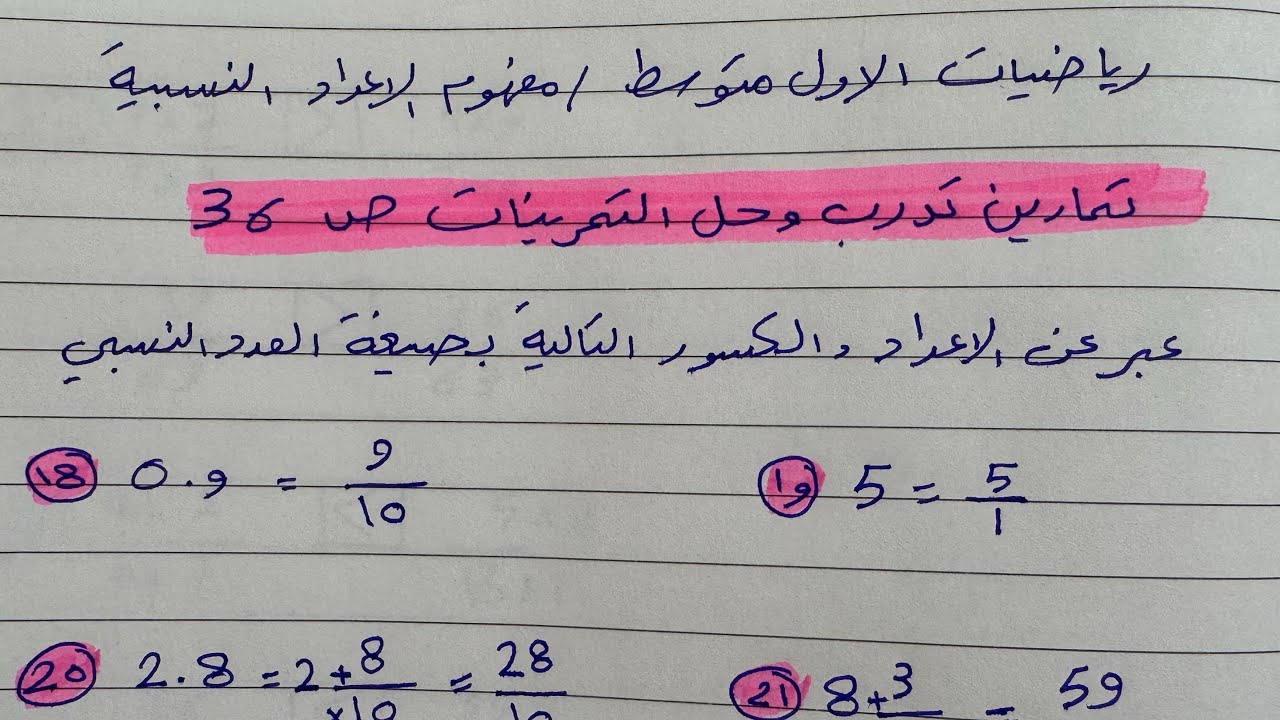 رياضيات الاول متوسط / مفهوم الاعداد النسبية
تمارين تدرب وحل التمرينات ص 36
عبر عن الاعداد والكسور التالية بصيغة العدد النسبي
18 0.9 = 9/10
19 5 = 5/1
20 2.8 = 2 + 8/×10 = 28/10
21 8 + 3/ = 59